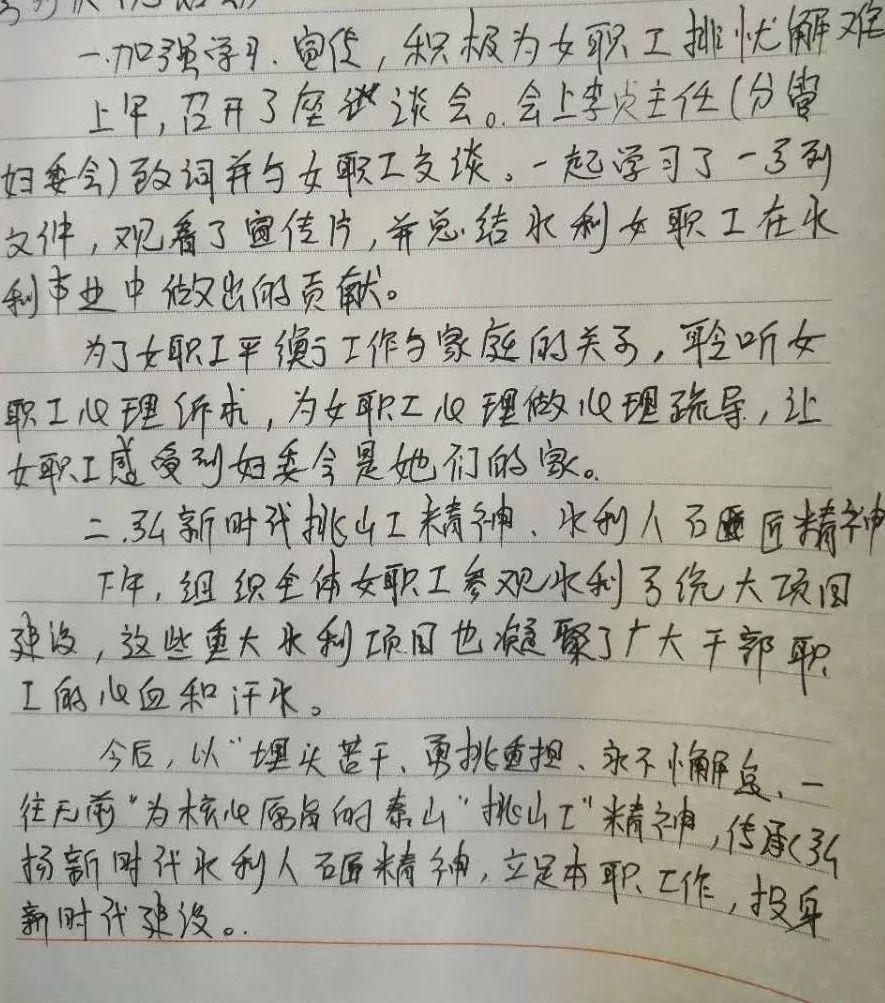 一.加强学习、宣传，积极为女职工排忧解难
上午，召开了座谈会。会上李 主任（分管
妇委会）致词并与女职工交谈。一起学习了一系列
文件，观看了宣传片，并总结水利女职工在水
利事业中做出的贡献。
为了女职工平衡于工作与家庭的关系，聆听女
职工心理诉求，为女职工心理做心理疏导，让
女职工感受到妇委会是她们的家。
二.弘新时代挑山工精神、水利人石匠精神
下午，组织全体女职工参观水利系统大项目
建设，这些重大水利项目也凝聚了广大干部职
工的心血和汗水。
今后，以“埋头苦干、勇挑重担、永不懈怠、一
往无前”为核心 的泰山“挑山工”精神，传承弘
扬新时代水利人石匠精神，立足本职工作，投身
新时代建设。